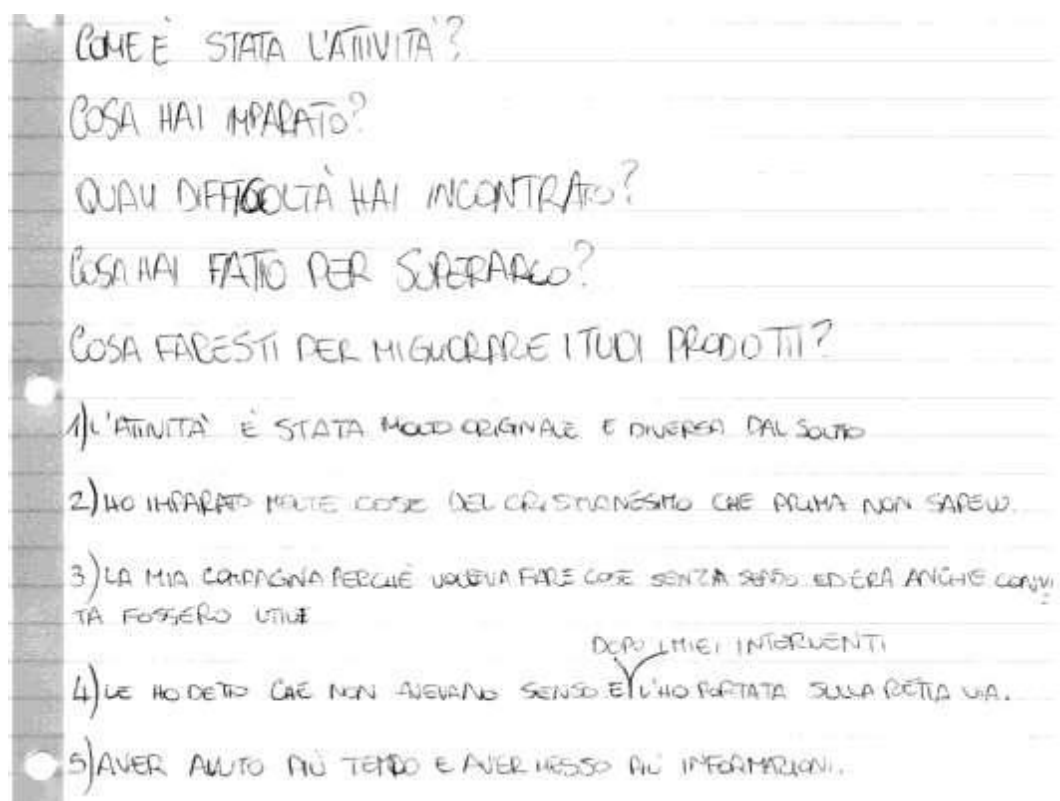 COME È STATA L'ATTIVITÀ?
COSA HAI IMPARATO?
QUALI DIFFICOLTÀ HAI INCONTRATO?
COSA HAI FATTO PER SUPERARLO?
COSA FARESTI PER MIGLIORARE I TUOI PRODOTTI?
1) L'ATTIVITÀ È STATA MOLTO ORIGINALE E DIVERSA DAL SOLITO
2) HO IMPARATO MOLTE COSE DEL CRISTIANESIMO CHE PRIMA NON SAPEVO.
3) LA MIA COMPAGNA PERCHÈ VOLEVA FARE COSE SENZA SENSO ED ERA ANCHE CONVI
TA FOSSERO UTILI
DOPO I MIEI INTERVENTI
4) LE HO DETTO CHE NON AVEVANO SENSO E L'HO PORTATA SULLA RETTA VIA.
5) AVER AVUTO PIÙ TEMPO E AVER MESSO PIÙ INFORMAZIONI.